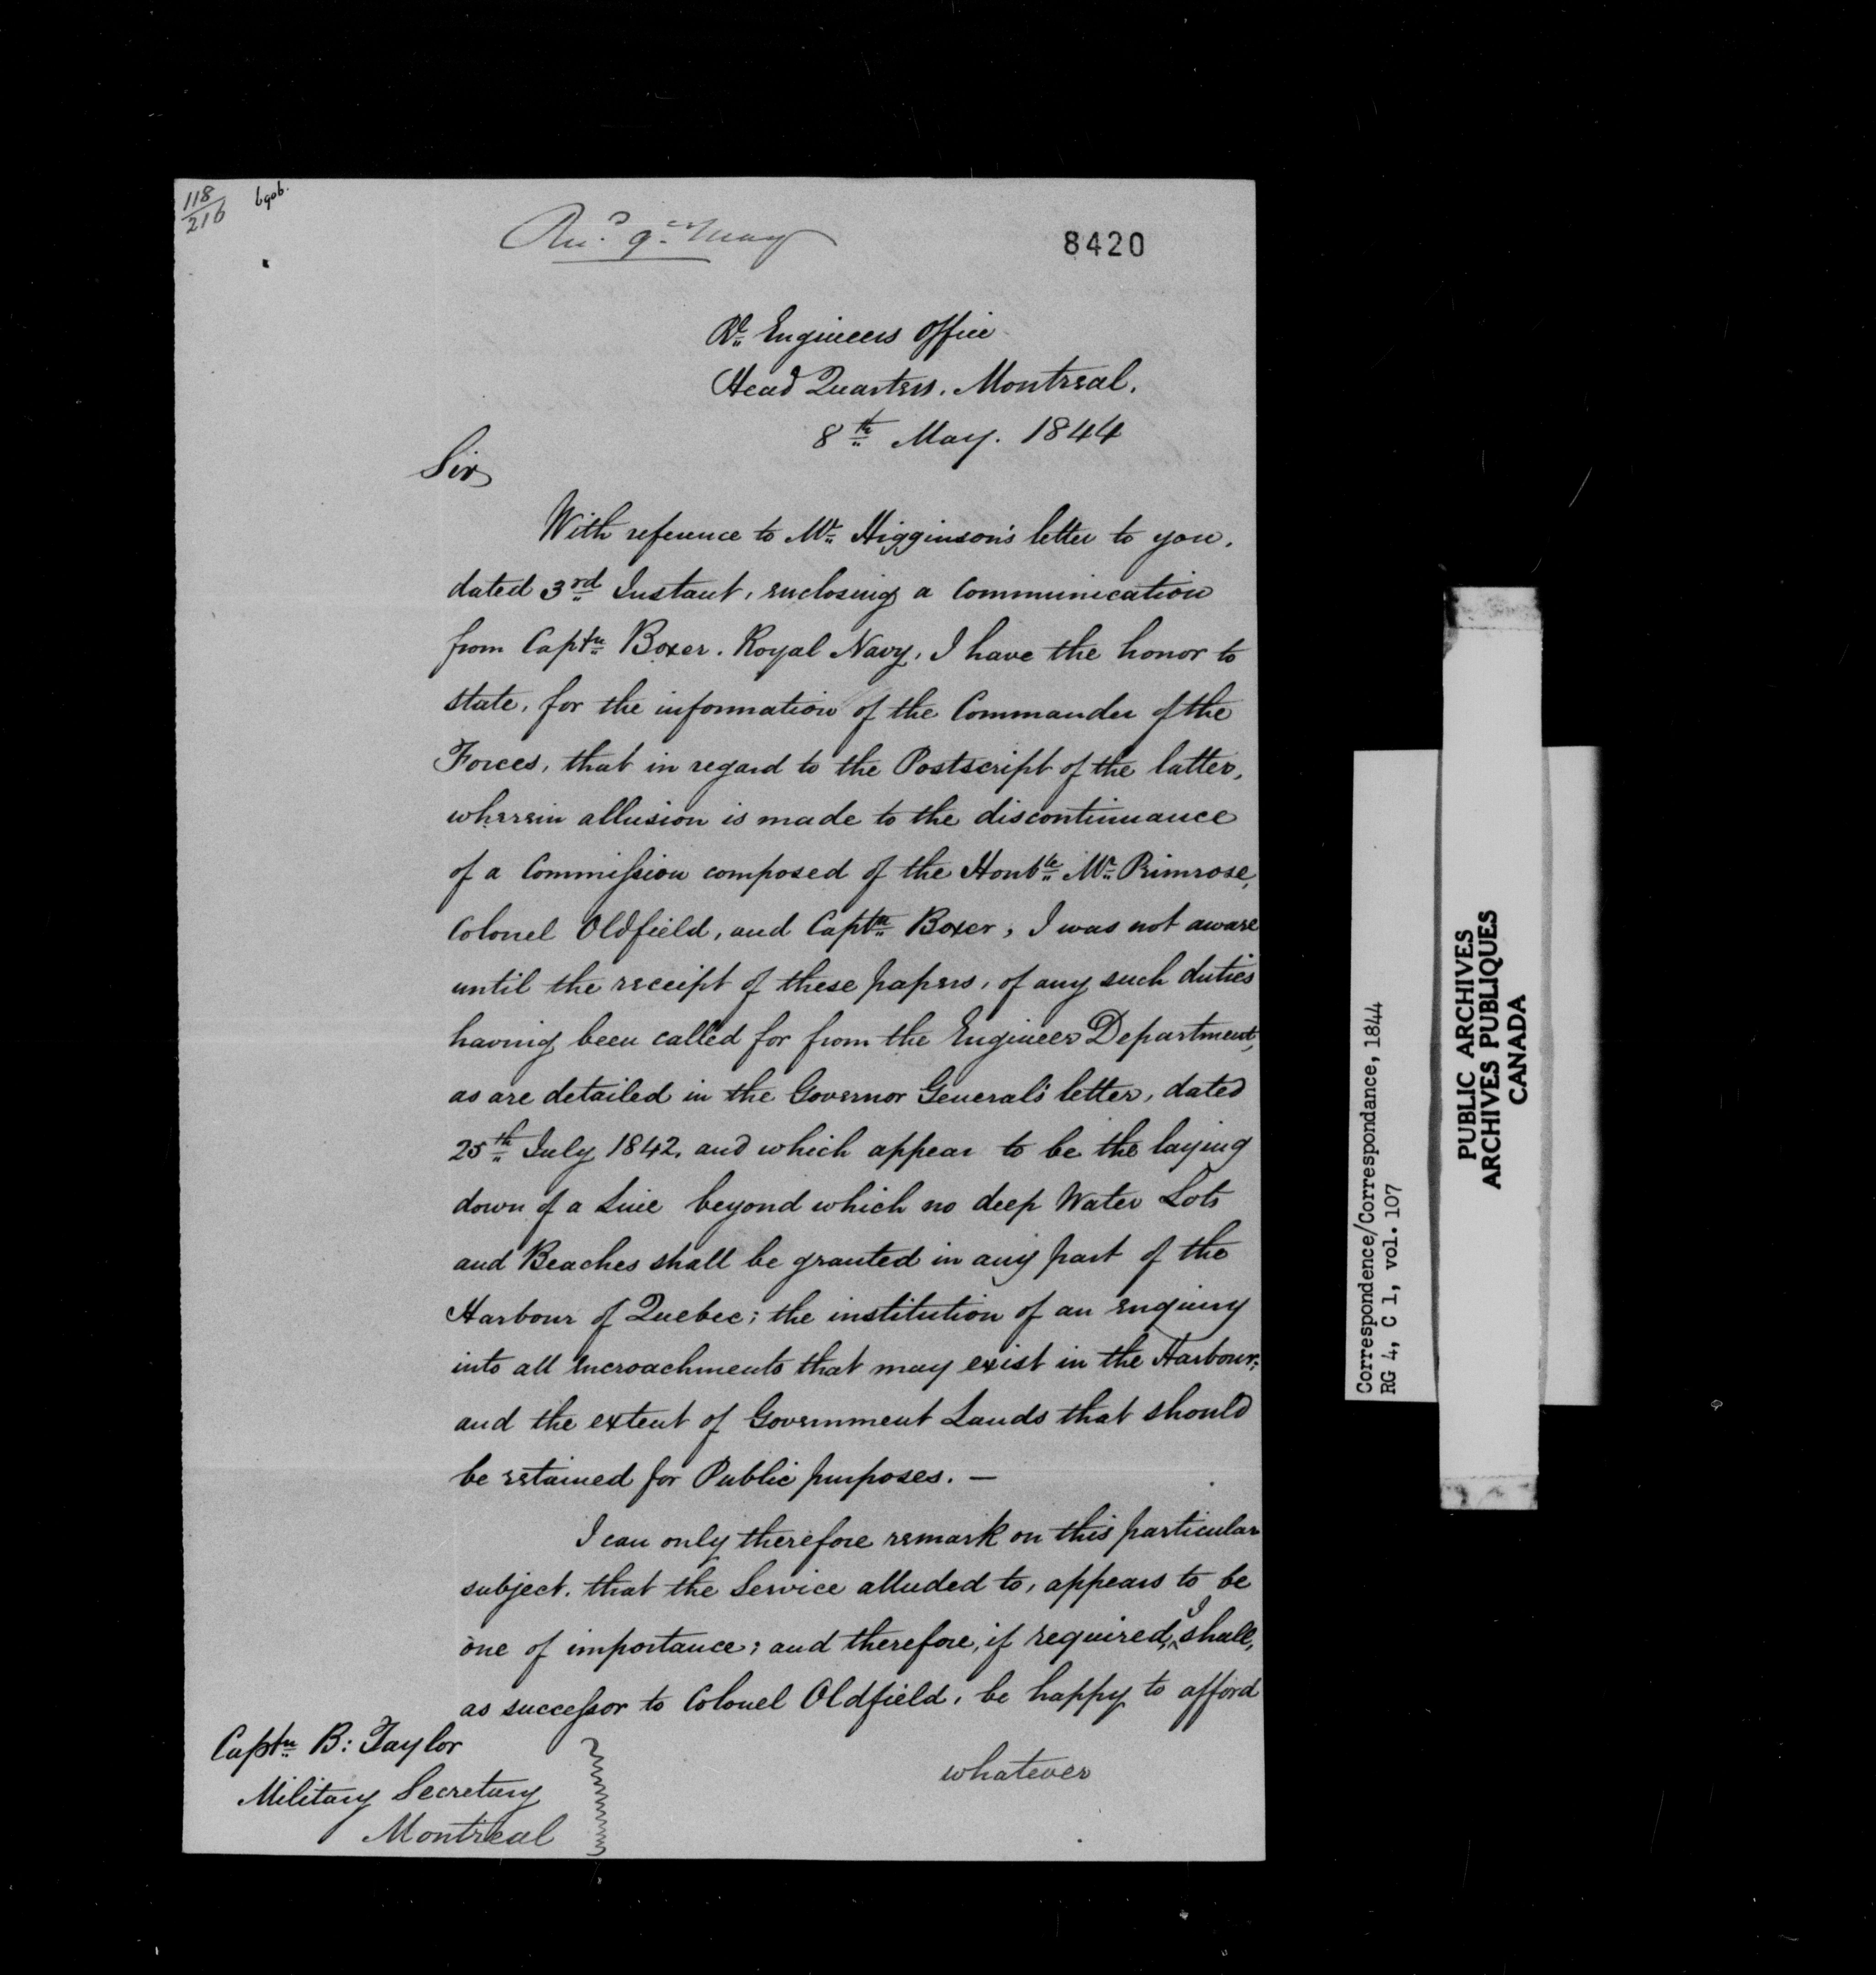 118
216
Rd. 9th May
8420
Rl. Engineers Office
Head Quarters. Montreal.
8th May. 1844
Sir
With reference to Mr. Higginson's letter to you,
dated 3rd Instant, enclosing a Communication
from Captn. Boxer. Royal Navy, I have the honor to
state, for the information of the Commander of the
Forces, that in regard to the Postscript of the latter,
wherein allusion is made to the discontinuance
of a Commission composed of the Honble. Mr. Primrose,
Colonel Oldfield, and Captn. Boxer, I was not aware
until the receipt of these papers, of any such duties
having been called for from the Engineer Department,
as are detailed in the Governor General's letter, dated
25th July 1842, and which appear to be the laying
down of a Line beyond which no deep Water Lots
and Beaches shall be granted in any part of the
Harbour of Quebec; the institution of an enquiry
into all encroachments that may exist in the Harbour;
and the extent of Government Lands that should
be retained for Public purposes. —
I can only therefore remark on this particular
subject, that the Service alluded to, appears to be
one of importance; and therefore, if required, I shall,
as successor to Colonel Oldfield, be happy to afford
whatever
Captn. B: Taylor
Military Secretary
Montreal
Correspondence/Correspondance, 1844
RG 4, C 1, vol. 107
PUBLIC ARCHIVES
ARCHIVES PUBLIQUES
CANADA